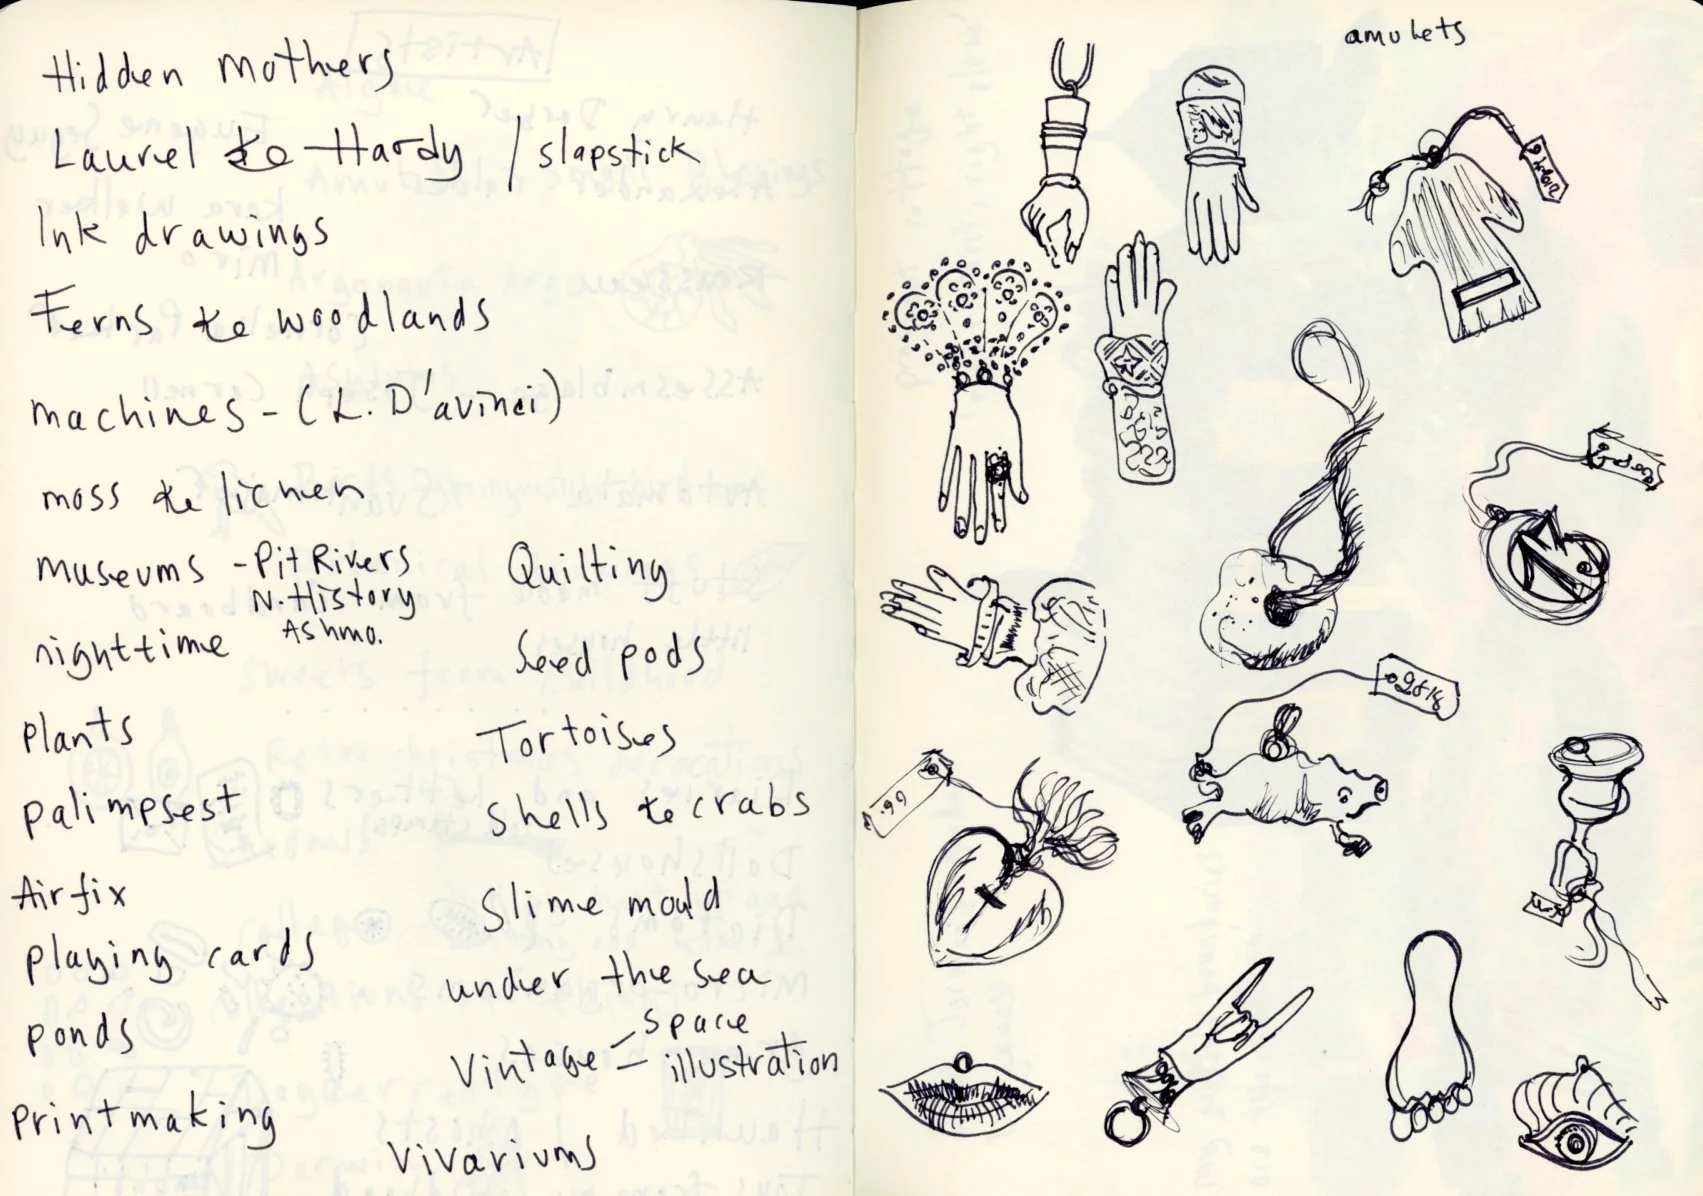 Hidden mothers
Laurel & Hardy / slapstick
Ink drawings
Ferns & woodlands
machines - (L. D'avinci)
moss & lichen
museums - Pit Rivers
N. History
Ashmo.
nighttime
plants
palimpsest
Airfix
playing cards
ponds
printmaking
Quilting
Seed pods
Tortoises
Shells & crabs
Slime mould
under the sea
Vintage - space
- illustration
Vivariums
amulets